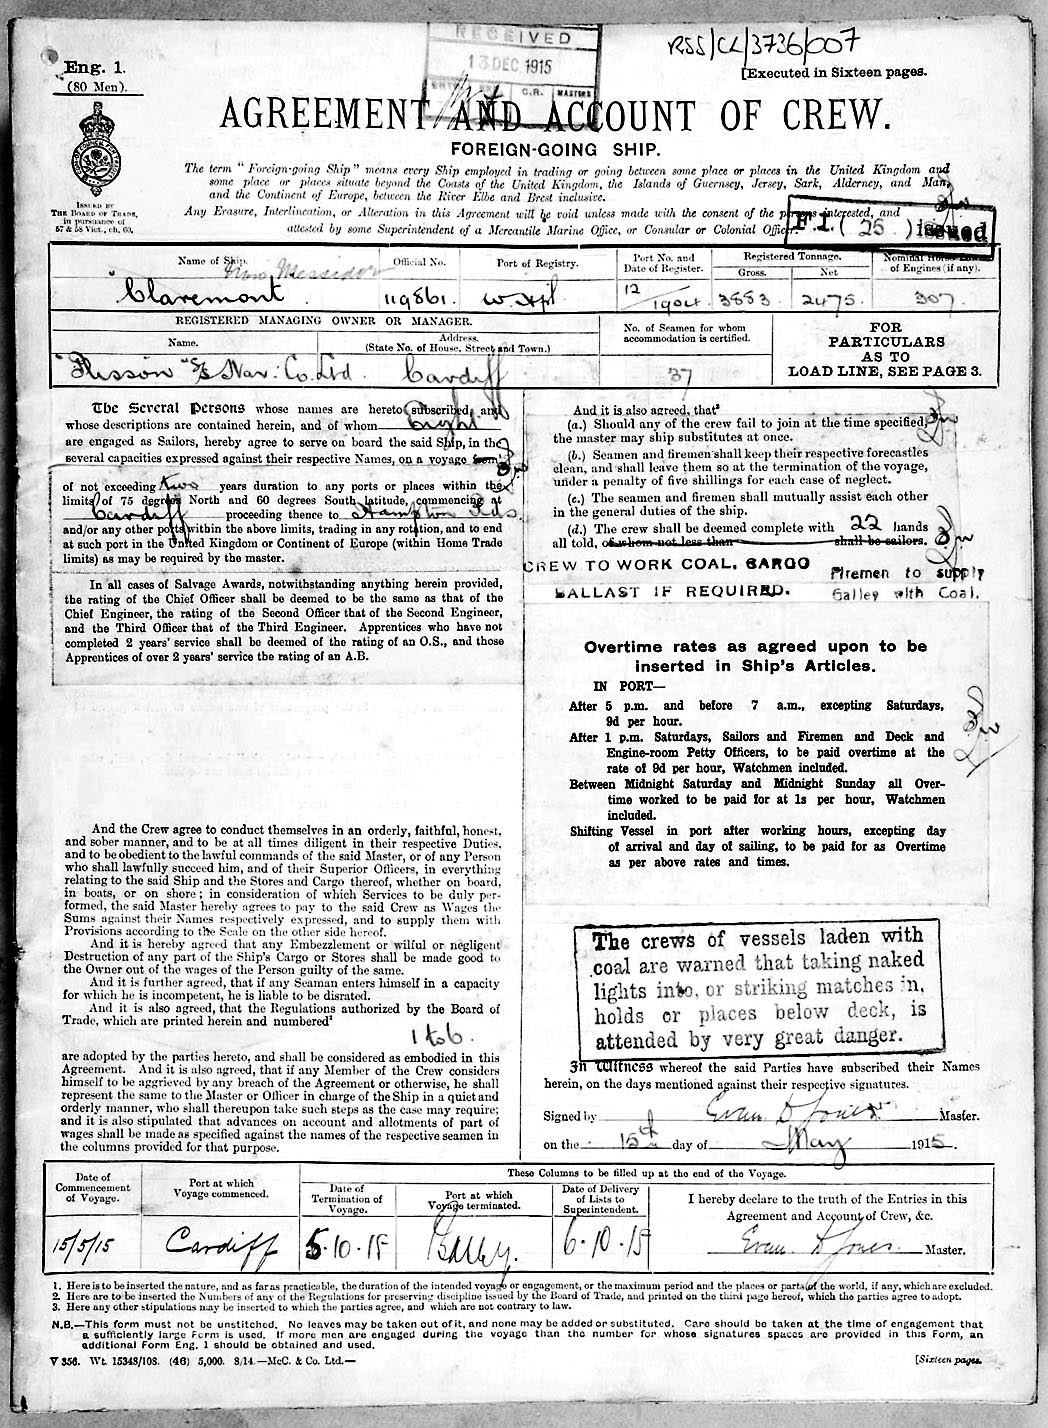 RECEIVED
13 DEC 1915
C.R. MASTERS
RSS/CL/3736/007
[Executed in Sixteen pages.
Eng. 1.
(80 Men).
AGREEMENT AND ACCOUNT OF CREW.
FOREIGN-GOING SHIP.
ISSUED BY
THE BOARD OF TRADE,
in pursuance of
57 & 58 Vict., ch. 60.
The term "Foreign-going Ship" means every Ship employed in trading or going between some place or places in the United Kingdom and
some place or places situate beyond the Coasts of the United Kingdom, the Islands of Guernsey, Jersey, Sark, Alderney, and Man,
and the Continent of Europe, between the River Elbe and Brest inclusive.
Any Erasure, Interlineation, or Alteration in this Agreement will be void unless made with the consent of the persons interested, and
attested by some Superintendent of a Mercantile Marine Office, or Consular or Colonial Officer.
F.1. (25) issued
Name of Ship.
Official No.
Port of Registry.
Port No. and
Date of Register.
Registered Tonnage.
Gross.
Net
Nominal Horse Power
of Engines (if any).
now Messidor
"Claremont
119861.
W. Hpl
12/1904.
3883
2475
307.
REGISTERED MANAGING OWNER OR MANAGER.
Name.
Address.
(State No. of House, Street and Town.)
No. of Seamen for whom
accommodation is certified.
FOR
PARTICULARS
AS TO
LOAD LINE, SEE PAGE 3.
S/S Nav: Co. Ltd. Cardiff
37
The Several Persons whose names are hereto subscribed, and
whose descriptions are contained herein, and of whom Eight
are engaged as Sailors, hereby agree to serve on board the said Ship, in the
several capacities expressed against their respective Names, on a voyage from
of not exceeding two years duration to any ports or places within the
limits of 75 degrees North and 60 degrees South latitude, commencing at
Cardiff proceeding thence to Hampton Rds
and/or any other ports within the above limits, trading in any rotation, and to end
at such port in the United Kingdom or Continent of Europe (within Home Trade
limits) as may be required by the master.
In all cases of Salvage Awards, notwithstanding anything herein provided,
the rating of the Chief Officer shall be deemed to be the same as that of the
Chief Engineer, the rating of the Second Officer that of the Second Engineer,
and the Third Officer that of the Third Engineer. Apprentices who have not
completed 2 years' service shall be deemed of the rating of an O.S., and those
Apprentices of over 2 years' service the rating of an A.B.
And the Crew agree to conduct themselves in an orderly, faithful, honest,
and sober manner, and to be at all times diligent in their respective Duties,
and to be obedient to the lawful commands of the said Master, or of any Person
who shall lawfully succeed him, and of their Superior Officers, in everything
relating to the said Ship and the Stores and Cargo thereof, whether on board,
in boats, or on shore; in consideration of which Services to be duly per-
formed, the said Master hereby agrees to pay to the said Crew as Wages the
Sums against their Names respectively expressed, and to supply them with
Provisions according to the Scale on the other side hereof.
And it is hereby agreed that any Embezzlement or wilful or negligent
Destruction of any part of the Ship's Cargo or Stores shall be made good to
the Owner out of the wages of the Person guilty of the same.
And it is further agreed, that if any Seaman enters himself in a capacity
for which he is incompetent, he is liable to be disrated.
And it is also agreed, that the Regulations authorized by the Board of
Trade, which are printed herein and numbered²
1 to 6.
are adopted by the parties hereto, and shall be considered as embodied in this
Agreement. And it is also agreed, that if any Member of the Crew considers
himself to be aggrieved by any breach of the Agreement or otherwise, he shall
represent the same to the Master or Officer in charge of the Ship in a quiet and
orderly manner, who shall thereupon take such steps as the case may require;
and it is also stipulated that advances on account and allotments of part of
wages shall be made as specified against the names of the respective seamen in
the columns provided for that purpose.
And it is also agreed, that³
(a.) Should any of the crew fail to join at the time specified,
the master may ship substitutes at once.
(b.) Seamen and firemen shall keep their respective forecastles
clean, and shall leave them so at the termination of the voyage,
under a penalty of five shillings for each case of neglect.
(c.) The seamen and firemen shall mutually assist each other
in the general duties of the ship.
(d.) The crew shall be deemed complete with 22 hands
all told, of whom not less than shall be sailors.
CREW TO WORK COAL, CARGO
BALLAST IF REQUIRED.
Firemen to supply
Galley with Coal.
Overtime rates as agreed upon to be
inserted in Ship's Articles.
IN PORT—
After 5 p.m. and before 7 a.m., excepting Saturdays,
9d per hour.
After 1 p.m. Saturdays, Sailors and Firemen and Deck and
Engine-room Petty Officers, to be paid overtime at the
rate of 9d per hour, Watchmen included.
Between Midnight Saturday and Midnight Sunday all Over-
time worked to be paid for at 1s per hour, Watchmen
included.
Shifting Vessel in port after working hours, excepting day
of arrival and day of sailing, to be paid for as Overtime
as per above rates and times.
The crews of vessels laden with
coal are warned that taking naked
lights into, or striking matches in,
holds or places below deck, is
attended by very great danger.
In Witness whereof the said Parties have subscribed their Names
herein, on the days mentioned against their respective signatures.
Signed by Evan D Jones Master.
on the 15th day of May 1915.
Date of
Commencement
of Voyage.
Port at which
Voyage commenced.
These Columns to be filled up at the end of the Voyage.
Date of
Termination of
Voyage.
Port at which
Voyage terminated.
Date of Delivery
of Lists to
Superintendent.
I hereby declare to the truth of the Entries in this
Agreement and Account of Crew, &c.
15/5/15
Cardiff
5.10.15
6.10.15
Evan D Jones. Master.
1. Here is to be inserted the nature, and as far as practicable, the duration of the intended voyage or engagement, or the maximum period and the places or parts of the world, if any, which are excluded.
2. Here are to be inserted the Numbers of any of the Regulations for preserving discipline issued by the Board of Trade, and printed on the third page hereof, which the parties agree to adopt.
3. Here any other stipulations may be inserted to which the parties agree, and which are not contrary to law.
N.B.—This form must not be unstitched. No leaves may be taken out of it, and none may be added or substituted. Care should be taken at the time of engagement that
a sufficiently large Form is used. If more men are engaged during the voyage than the number for whose signatures spaces are provided in this Form, an
additional Form Eng. 1 should be obtained and used.
V 356. Wt. 15348/108. (46) 5,000. 8/14.—McC. & Co. Ltd.—
[Sixteen pages.